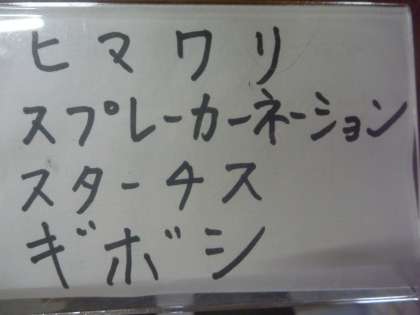 ヒマワリ
スプレーカーネーション
スターチス
ギボシ